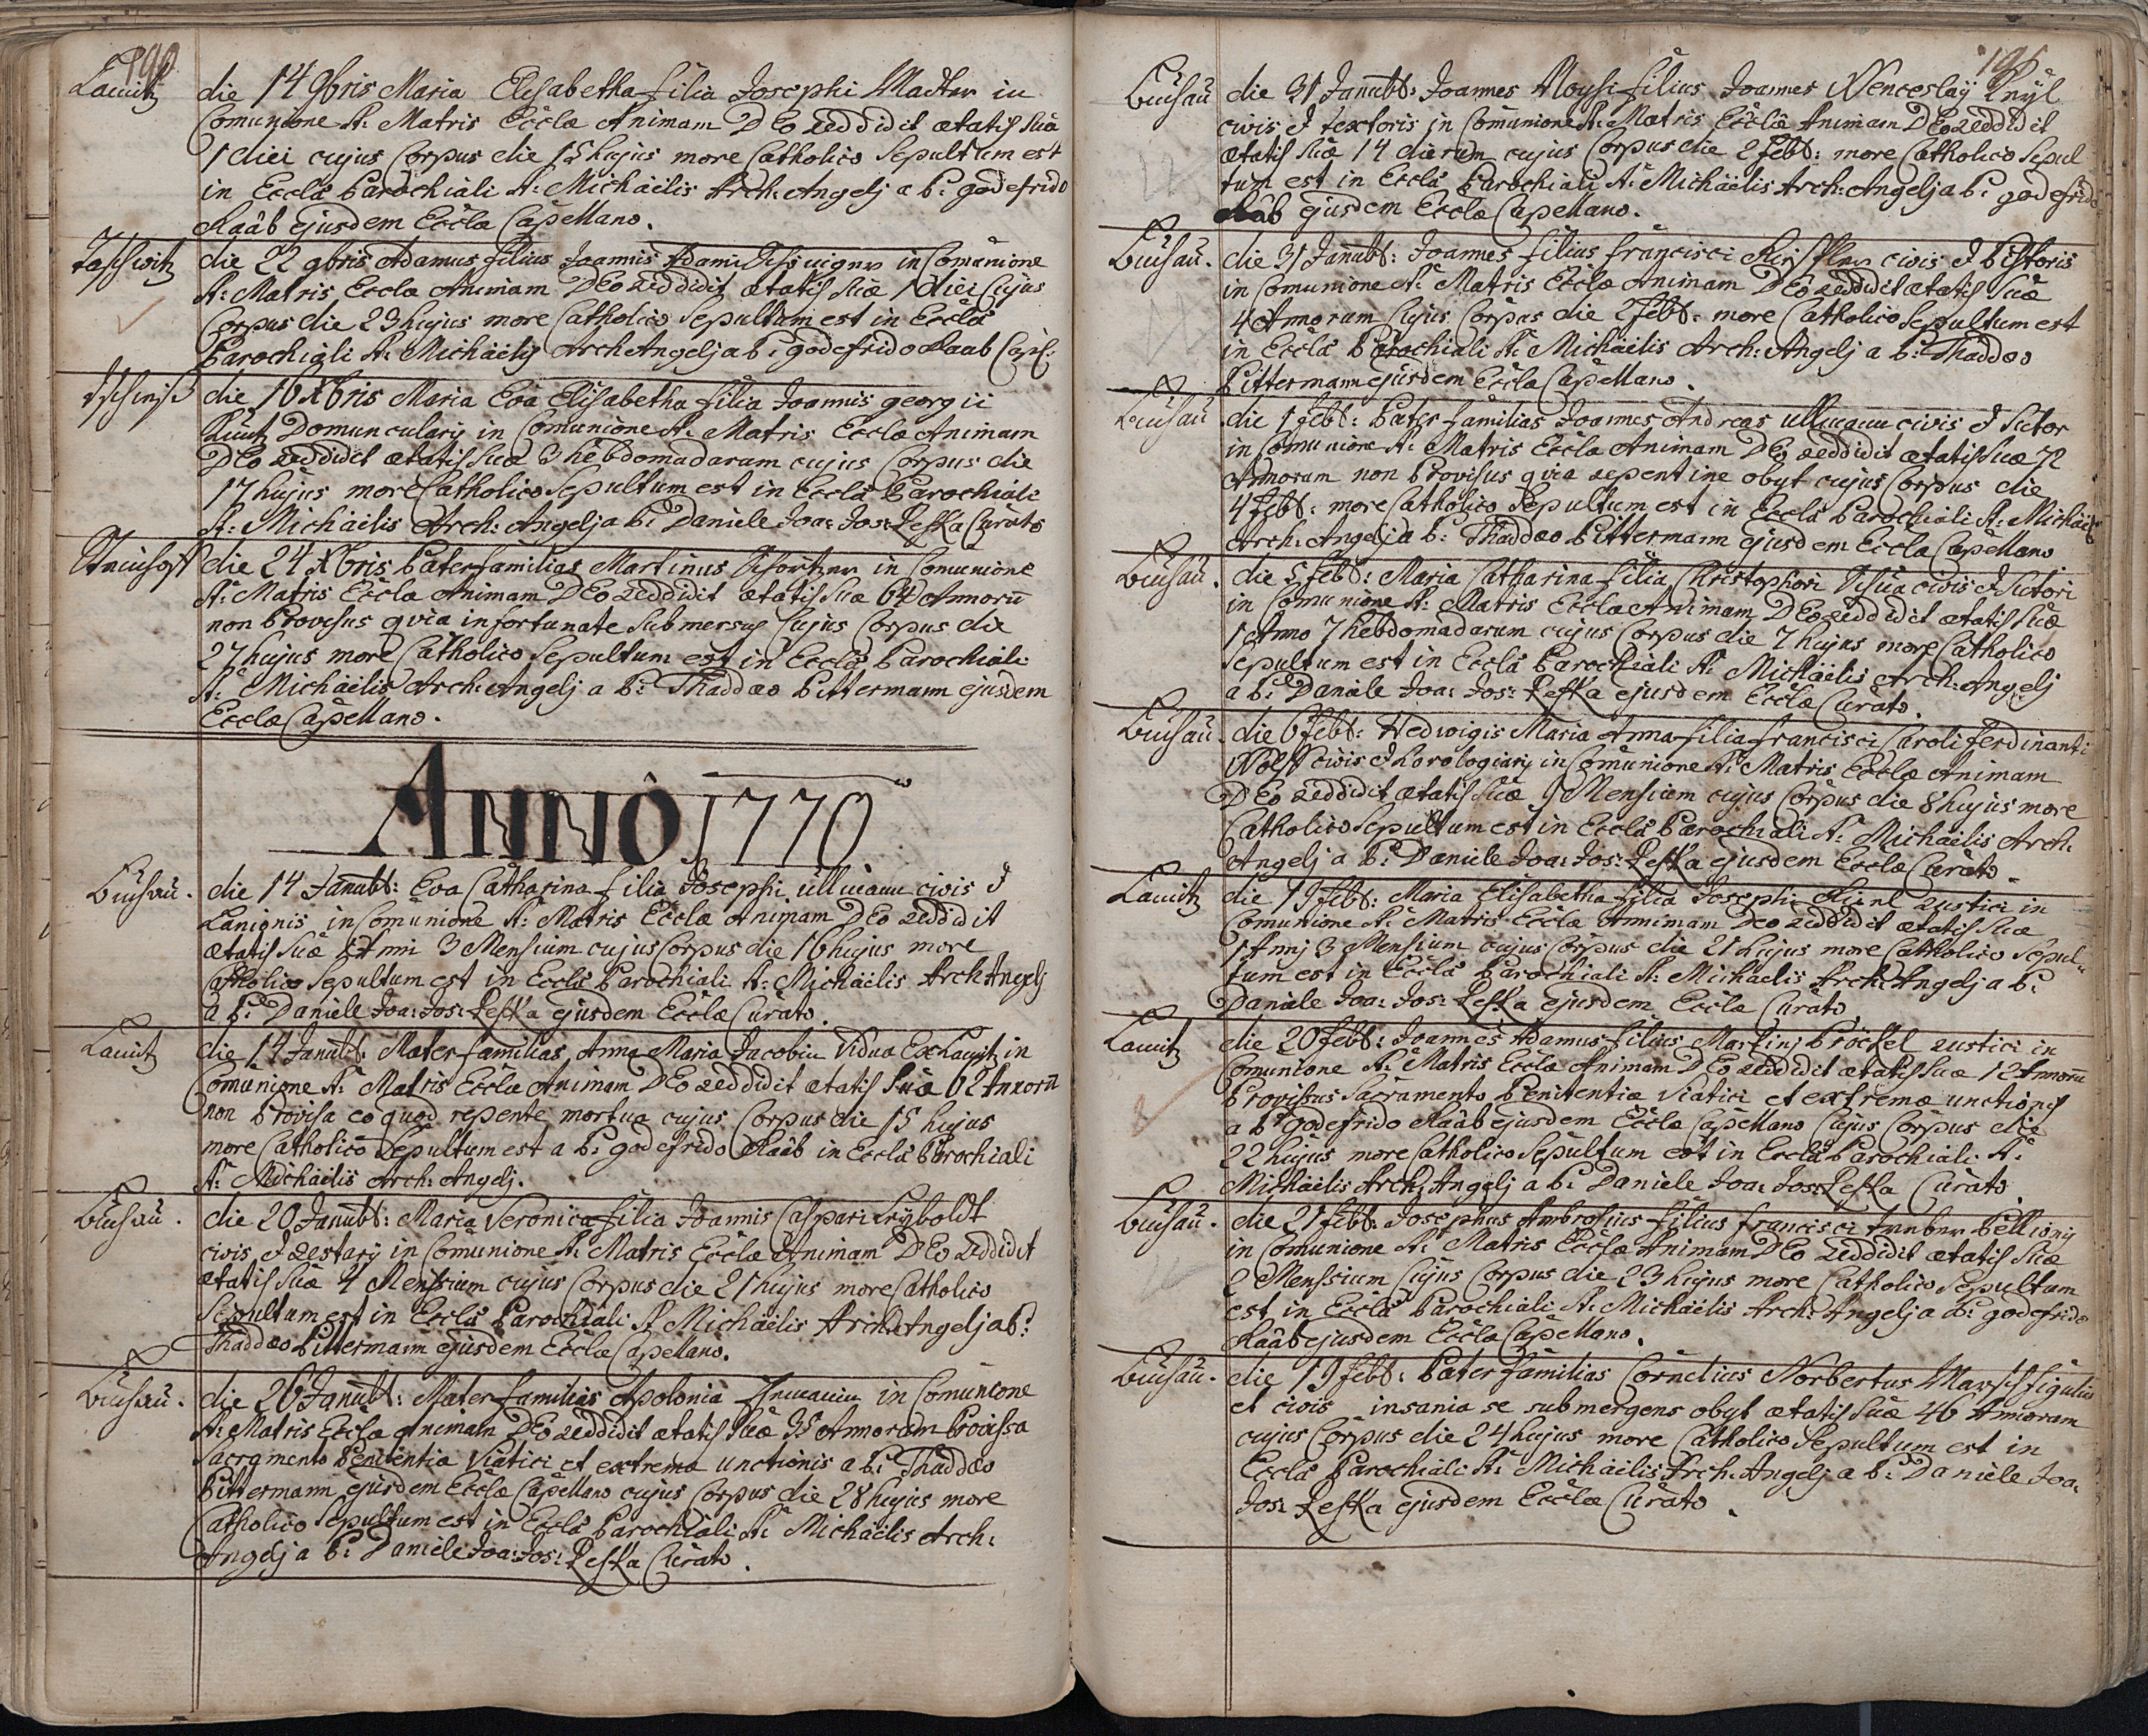 190
Lauitz
die 14 9bris Maria Elisabetha filia Josephi Macher in
Comunione S: Matris Eccłæ Animam DEo reddidit ætatis suæ
1 diei cujus Corpus die 15 hujus more Catholico Sepultum est
in Eccła Parochiali S: Michäelis Arch: Angelj a P: godefrido
Raâb ejusdem Eccła Capellano.
Taschwitz
die 22 9bris Adamus filius Joannis Adami in Comunione
S: Matris Eccła Animam DEo reddidit ætatis suæ 1 diei Cujus
Corpus die 23 hujus more Catholico Sepultum est in Eccła
Parochiali S: Michäelis Arch Angelj a P: godefrido Raab Capl:
die 16 Xbris Maria Eva Elisabetha filia Joannis georgii
Kuntz Domuncularij in Comunione S: Matris Eccłæ Animam
DEo reddidit ætatis suæ 3 hebdomadarum cujus Corpus die
17 hujus more Catholico Sepultum est in Eccła Parochiali
S: Michäelis Arch: Angelj a P: Daniele Joa: Jos: Peska Curato
die 24 Xbris Paterfamilias Martinus in Comunione
S: Matris Eccła Animam DEo reddidit ætatis suæ 64 Annorū
non Provisus qvia infortunate submersus Cujus Corpus die
27 hujus more Catholico Sepultum est in Eccła Parochiali
S: Michäelis Arch: Angelj a P: Thaddæo Pittermann ejusdem
Eccłæ Capellano.
ANNÔ 1770
Buchau.
die 14 Janūbr: Eva Catharina filia Josephi Ullmann civis &
Lanionis in Comunione S: Matris Eccłæ Animam DEo reddidit
ætatis suæ 1 Anni 3 Mensium cujus Corpus die 16 hujus more
Catholico Sepultum est in Eccła Parochiali S: Michäelis Arch Angelj
a P: Daniele Joa: Jos: Peska ejusdem Eccłæ Curato.
Lauitz
die 14 Janūbr: Materfamilias Anna Maria Jacobin Vidua Ex Lauitz in
Comunione S: Matris Eccłæ Animam DEo reddidit ætatis suæ 62 Annorū
non Provisa eo quod repente mortua cujus Corpus die 15 hujus
more Catholico Sepultum est a P: godefrido Raâb in Eccła Parochiali
S: Michäelis Arch: Angelj.
Buchau.
die 20 Janūbr: Maria Veronica filia Joannis Caspari Leyboldt
civis & Restarij in Comunione S: Matris Eccłæ Animam DEo reddidit
ætatis suæ 4 Menssium cujus Corpus die 21 hujus more Catholico
Sepultum est in Eccła Parochiali S: Michäelis Arch: Angelj a P:
Thaddæo Pittermann ejusdem Eccłæ Capellano.
Buchau.
die 26 Janūbr: Materfamilias Apolonia in Comunione
S: Matris Eccłæ Animam DEo reddidit ætatis suæ 35 Annorum Provissa
Sacramento Penitentiæ Viatici et extremæ unctionis a P: Thaddæo
Pittermann ejusdem Eccłæ Capellano cujus Corpus die 28 hujus more
Catholico Sepultum est in Eccła Parochiali S: Michäelis Arch:
Angelj a P: Daniele Joa: Jos: Peska Curato.
195
Buchau
die 31 Janūbr: Joannes Aloysi filius Joannes Wenceslaÿ Knÿl
civis & textoris in Comunione S: Matris Eccłæ Animam DEo reddidit
ætatis suæ 14 dierum cujus Corpus die 2 Febr: more Catholico Sepul
tum est in Eccła Parochiali S: Michäelis Arch: Angelj a P: godefrido
Raâb ejusdem Eccłæ Capellano.
Buchau.
die 31 Janūbr: Joannes filius francisci civis & Pistoris
in Comunione S: Matris Eccłæ Animam DEo reddidit ætatis suæ
4 Annorum Cujus Corpus die 2 Febr: more Catholico Sepultum est
in Eccła Parochiali S: Michäelis Arch: Angelj a P: Thaddæo
Pittermann ejusdem Eccłæ Capellano.
Buchau
die 1 Febr: Paterfamilias Joannes Andreas Ullmann civis & Sutor
in Comunione S: Matris Eccła Animam DEo reddidit ætatis suæ 72
Annorum non Provisus qvia repentine obyt cujus Corpus die
4 Febr: more Catholico Sepultum est in Eccła Parochiali S: Michäelis
Arch: Angelj a P: Thaddæo Pittermann ejusdem Eccłæ Capellano
Buchau.
die 5 Febr: Maria Catharina filia Christophori civis & Sutori
in Comunione S: Matris Eccłæ Animam DEo reddidit ætatis suæ
1 Anno 7 hebdomadarum cujus Corpus die 7 hujus more Catholico
Sepultum est in Eccła Parochiali S: Michäelis Arch: Angelj
a P: Daniele Joa: Jos: Peska ejusdem Eccłæ Curato.
Buchau.
die 6 Febr: Hedwigis Maria Anna filia francisci Caroli Ferdinanti
Wolff civis & horologiarij in Comunione S: Matris Eccłæ Animam
DEo reddidit ætatis suæ 9 Mensium cujus Corpus die 8 hujus more
Catholico Sepultum est in Eccła Parochiali S: Michaëlis Arch:
Angelj a P: Daniele Joa: Jos: Peska ejusdem Eccłæ Curato.
Lauitz
die 19 Febr: Maria Elisabetha filia Josephi rustici in
Comunione S: Matris Eccłæ Annimam DEo reddidit ætatis suæ
1 Annj 3 Mensium cujus Corpus die 21 hujus more Catholico Sepul-
tum est in Eccła Parochiali S: Michaelis Arch: Angelj a P:
Daniele Joa: Jos: Peska ejusdem Eccła Curato
Lauitz
die 20 Febr: Joannes Adamus filius Martinj Pröckel rustici in
Comunione S: Matris Eccłæ Animam DEo reddidit ætatis suæ 12 Annorū
Provissus Sacramento Penitentiæ Viatici et extremæ unctionis
a P: godefrido Raâb ejusdem Eccłæ Capellano Cujus Corpus die
22 hujus more Catholico Sepultum est in Eccła Parochiali S:
Michäelis Arch: Angelj a P: Daniele Joa: Jos: Peska Curato
Buchau.
die 21 Febr: Josephus Ambrosius filius francisci Pellionij
in Comunione S: Matris Eccłæ Animam DEo reddidit ætatis suæ
2 Menssium Cujus Corpus die 23 hujus more Catholico Sepultum
est in Eccła Parochiali S: Michäelis Arch: Angelj a P: godefrido
Raâb ejusdem Eccłæ Capellano.
Buchau.
die 19 Febr: Paterfamilias Cornelius Norbertus Marsch figulus
et civis insania se submergens obyt ætatis suæ 46 Annorum
cujus Corpus die 24 hujus more Catholico Sepultum est in
Eccła Parochiali S: Michäelis Arch: Angelj a P: Daniele Joa:
Jos: Peska ejusdem Eccłæ Curato.